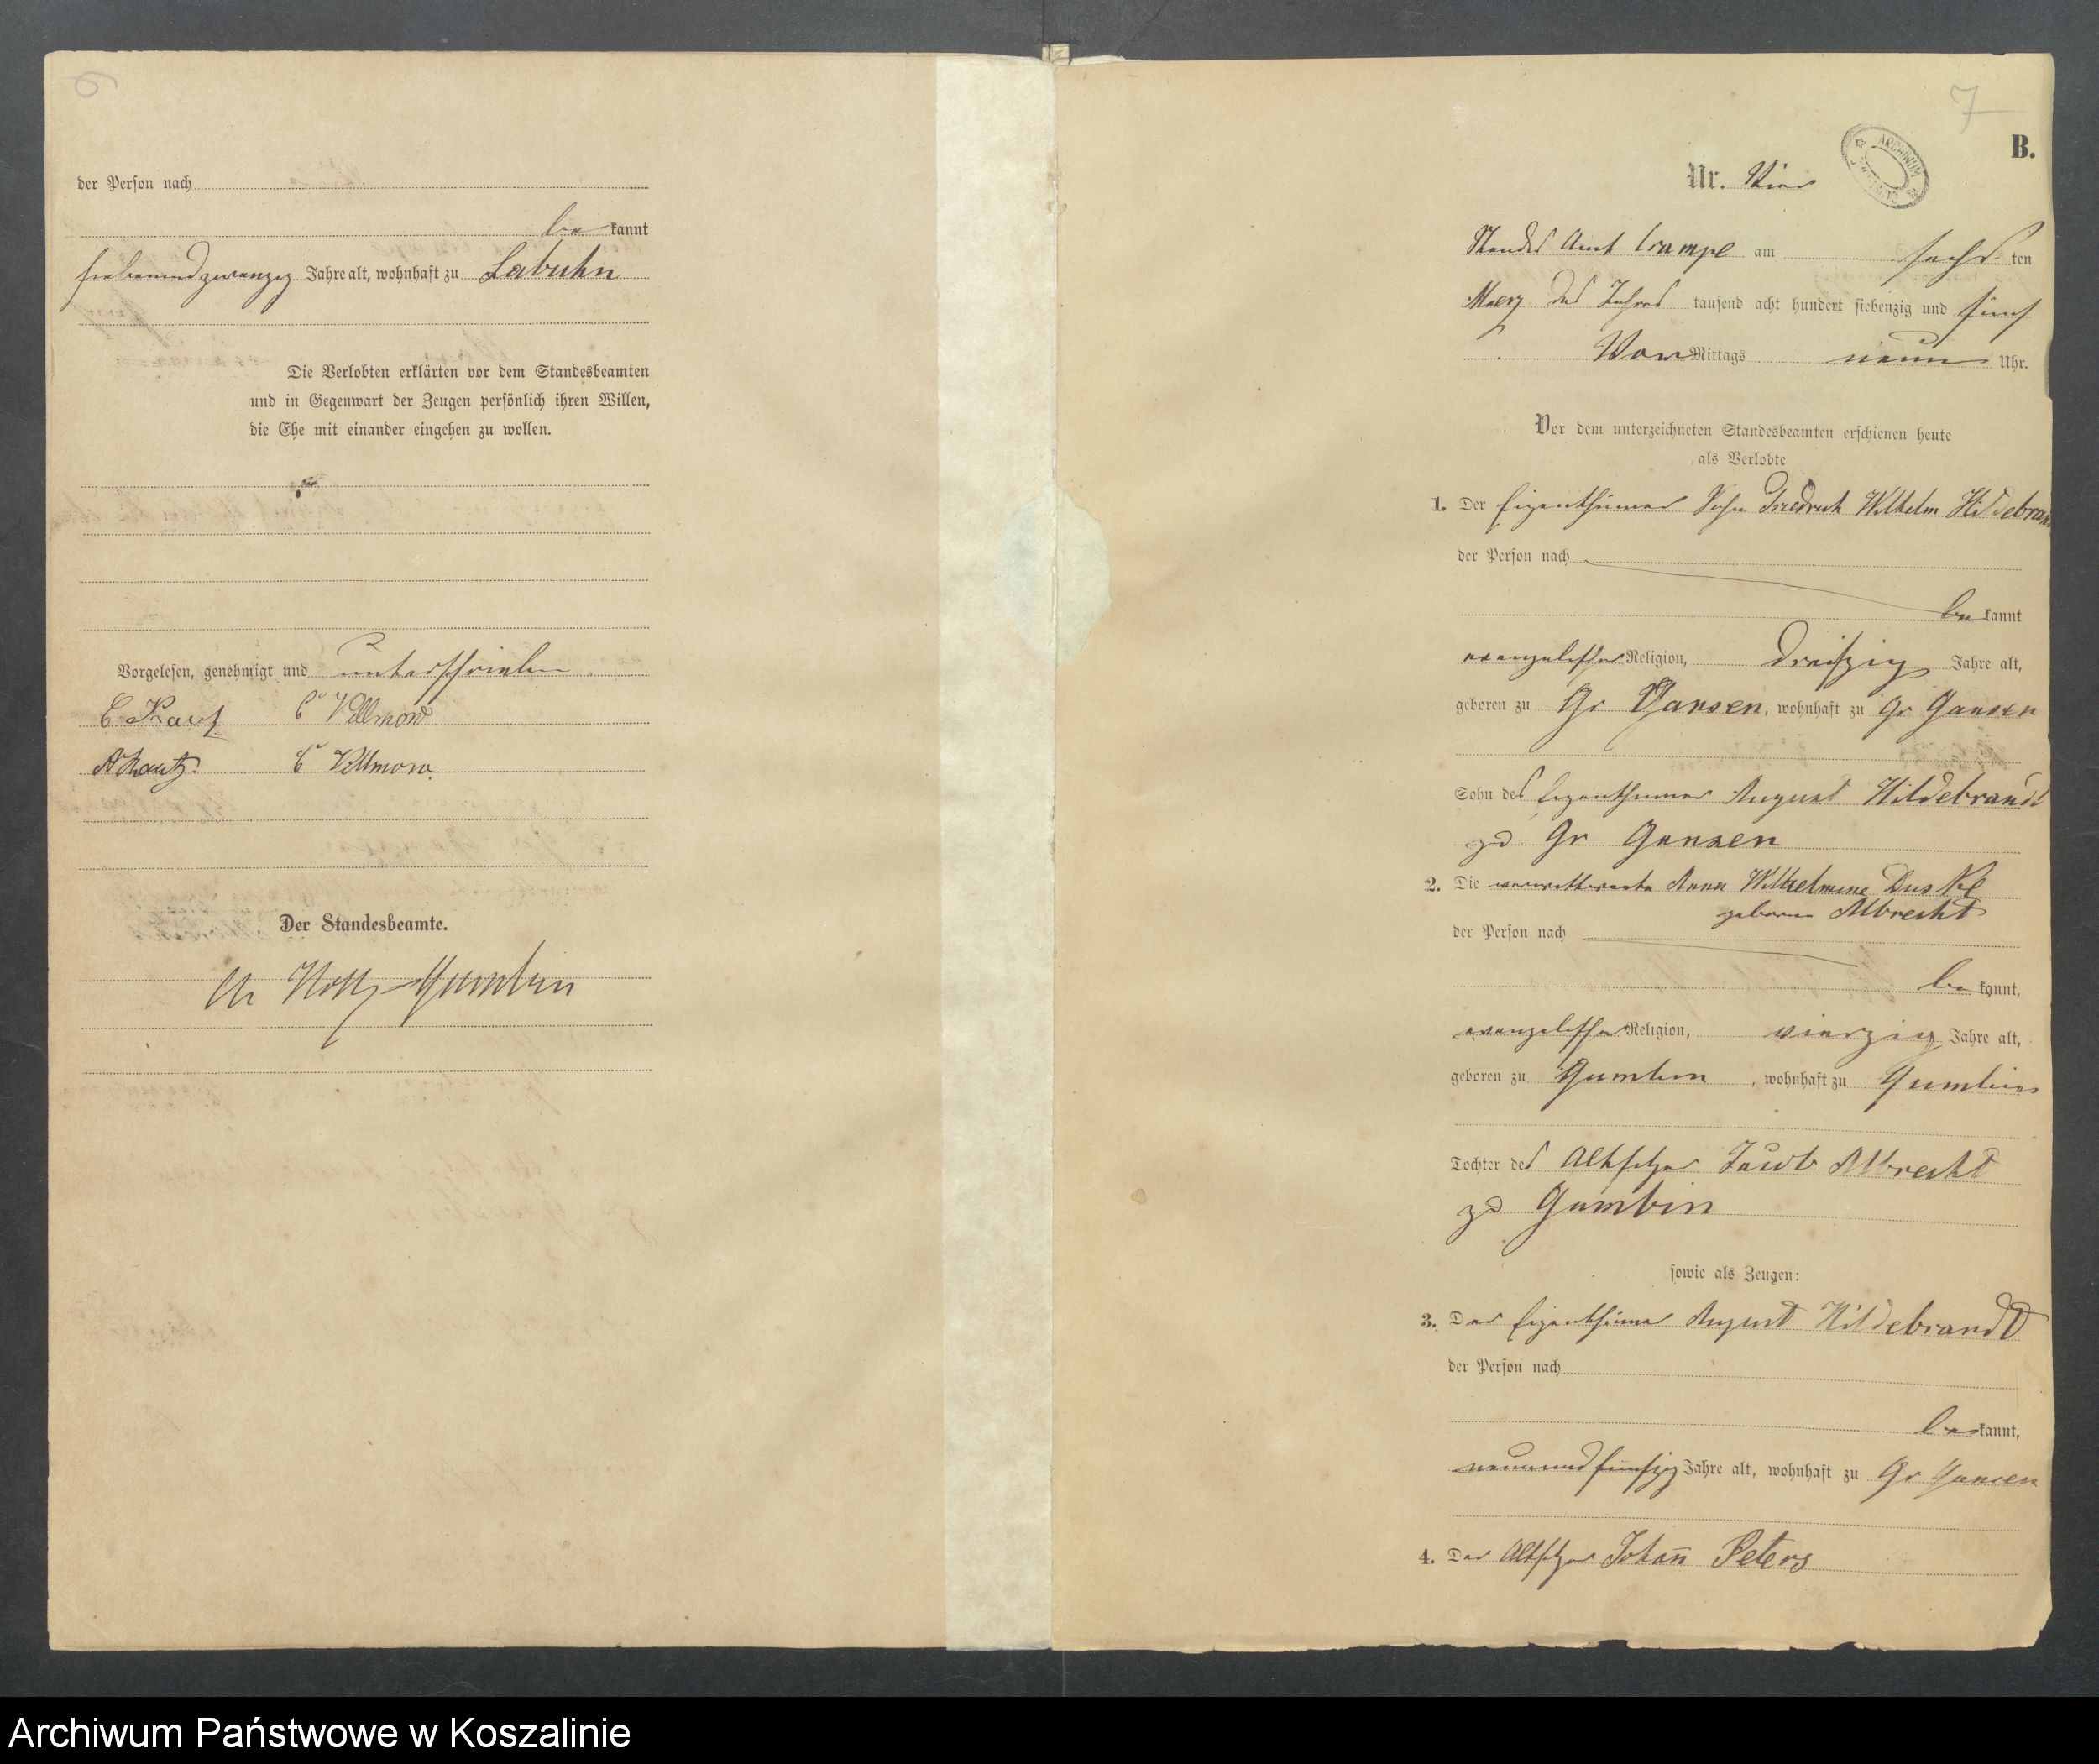 6
der Person nach
be kannt
siebenundzwanzig Jahre alt, wohnhaft zu Labuhn
Die Verlobten erklärten vor dem Standesbeamten
und in Gegenwart der Zeugen persönlich ihren Willen,
die Ehe mit einander eingehen zu wollen.
Vorgelesen, genehmigt und unterschrieben
C Kautz C Villmow
A Kautz. C Villmow.
Der Standesbeamte.
Gumbin
7
B.
ARCHIWUM
Nr. Vier
Standes Amt Crampe am sechs ten
Maerz des Jahres tausend acht hundert siebenzig und fünf
Vor Mittags neun Uhr.
Vor dem unterzeichneten Standesbeamten erschienen heute
als Verlobte
1. Der Eigenthümer Sohn Friedrich Wilhelm Hildebrandt
der Person nach
be kannt
evangelischer Religion, dreißig Jahre alt,
geboren zu Gr Gansen, wohnhaft zu Gr Gansen
Sohn des Eigenthümer August Hildebrandt
zu Gr Gansen
2. Die verwittwete Anna Wilhelmine Duske
geborne Albrecht
der Person nach
be kannt,
evangelischer Religion, vierzig Jahre alt,
geboren zu Gumbin, wohnhaft zu Gumbin
Tochter des Altsitzer Jacob Albrecht
zu Gumbin
sowie als Zeugen:
3. Der Eigenthümer August Hildebrandt
der Person nach
be kannt,
neunundfünfzig Jahre alt, wohnhaft zu Gr Gansen
4. Der Altsitzer Johann Peters
Archiwum Państwowe w Koszalinie